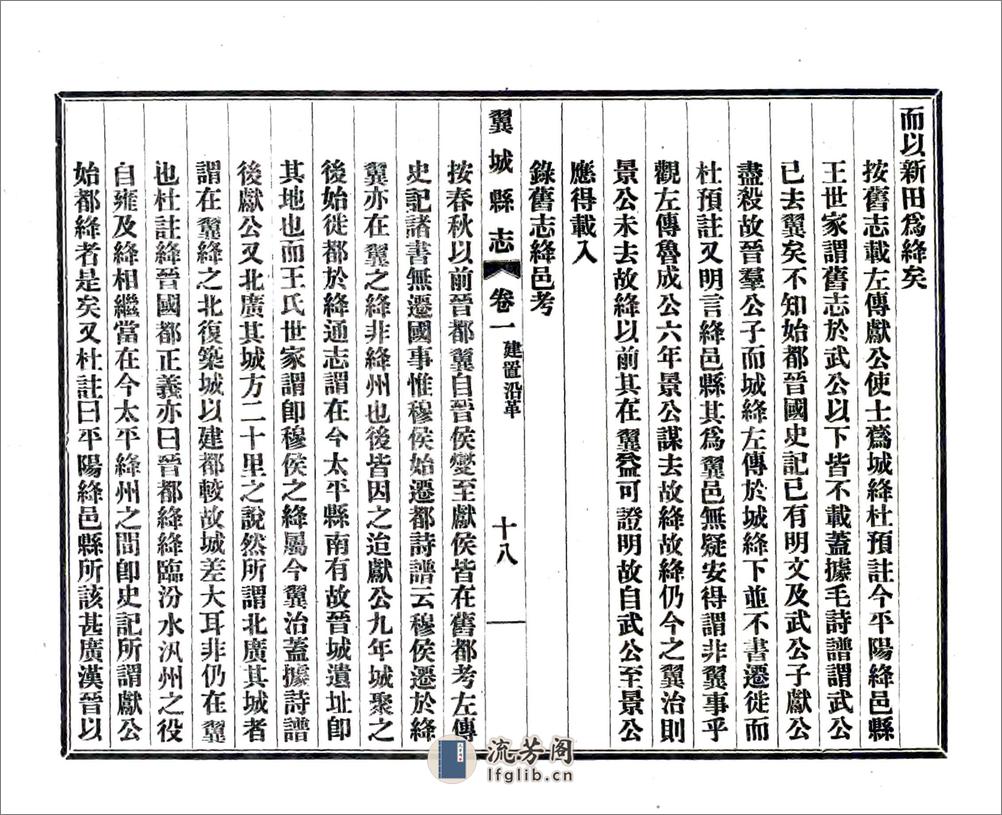 而以新田爲絳矣
按舊志載左傳獻公使士蔿城絳杜預註今平陽絳邑縣
王世家謂舊志於武公以下皆不載蓋據毛詩譜謂武公
已去翼矣不知始都晉國史記已有明文及武公子獻公
盡殺故晉羣公子而城絳左傳於城絳下並不書遷徙而
杜預註又明言絳邑縣其爲翼邑無疑安得謂非翼事乎
觀左傳魯成公六年景公謀去故絳故絳仍今之翼治則
景公未去故絳以前其在翼益可證明故自武公至景公
應得載入
錄舊志絳邑考
翼城縣志 卷一 建置沿革 十八
按春秋以前晉都翼自晉侯燮至獻侯皆在舊都考左傳
史記諸書無遷國事惟穆侯始遷都詩譜云穆侯遷於絳
翼亦在翼之絳非絳州也後皆因之迨獻公九年城聚之
後始徙都於絳通志謂在今太平縣南有故晉城遺址卽
其地也而王氏世家謂卽穆侯之絳屬今翼治蓋據詩譜
後獻公又北廣其城方二十里之說然所謂北廣其城者
謂在翼絳之北復築城以建都較故城差大耳非仍在翼
也杜註絳晉國都正義亦曰晉都絳絳臨汾水汎州之役
自雍及絳相繼當在今太平絳州之間卽史記所謂獻公
始都絳者是矣又杜註曰平陽絳邑縣所該甚廣漢晉以
流芳阁
lfglib.cn